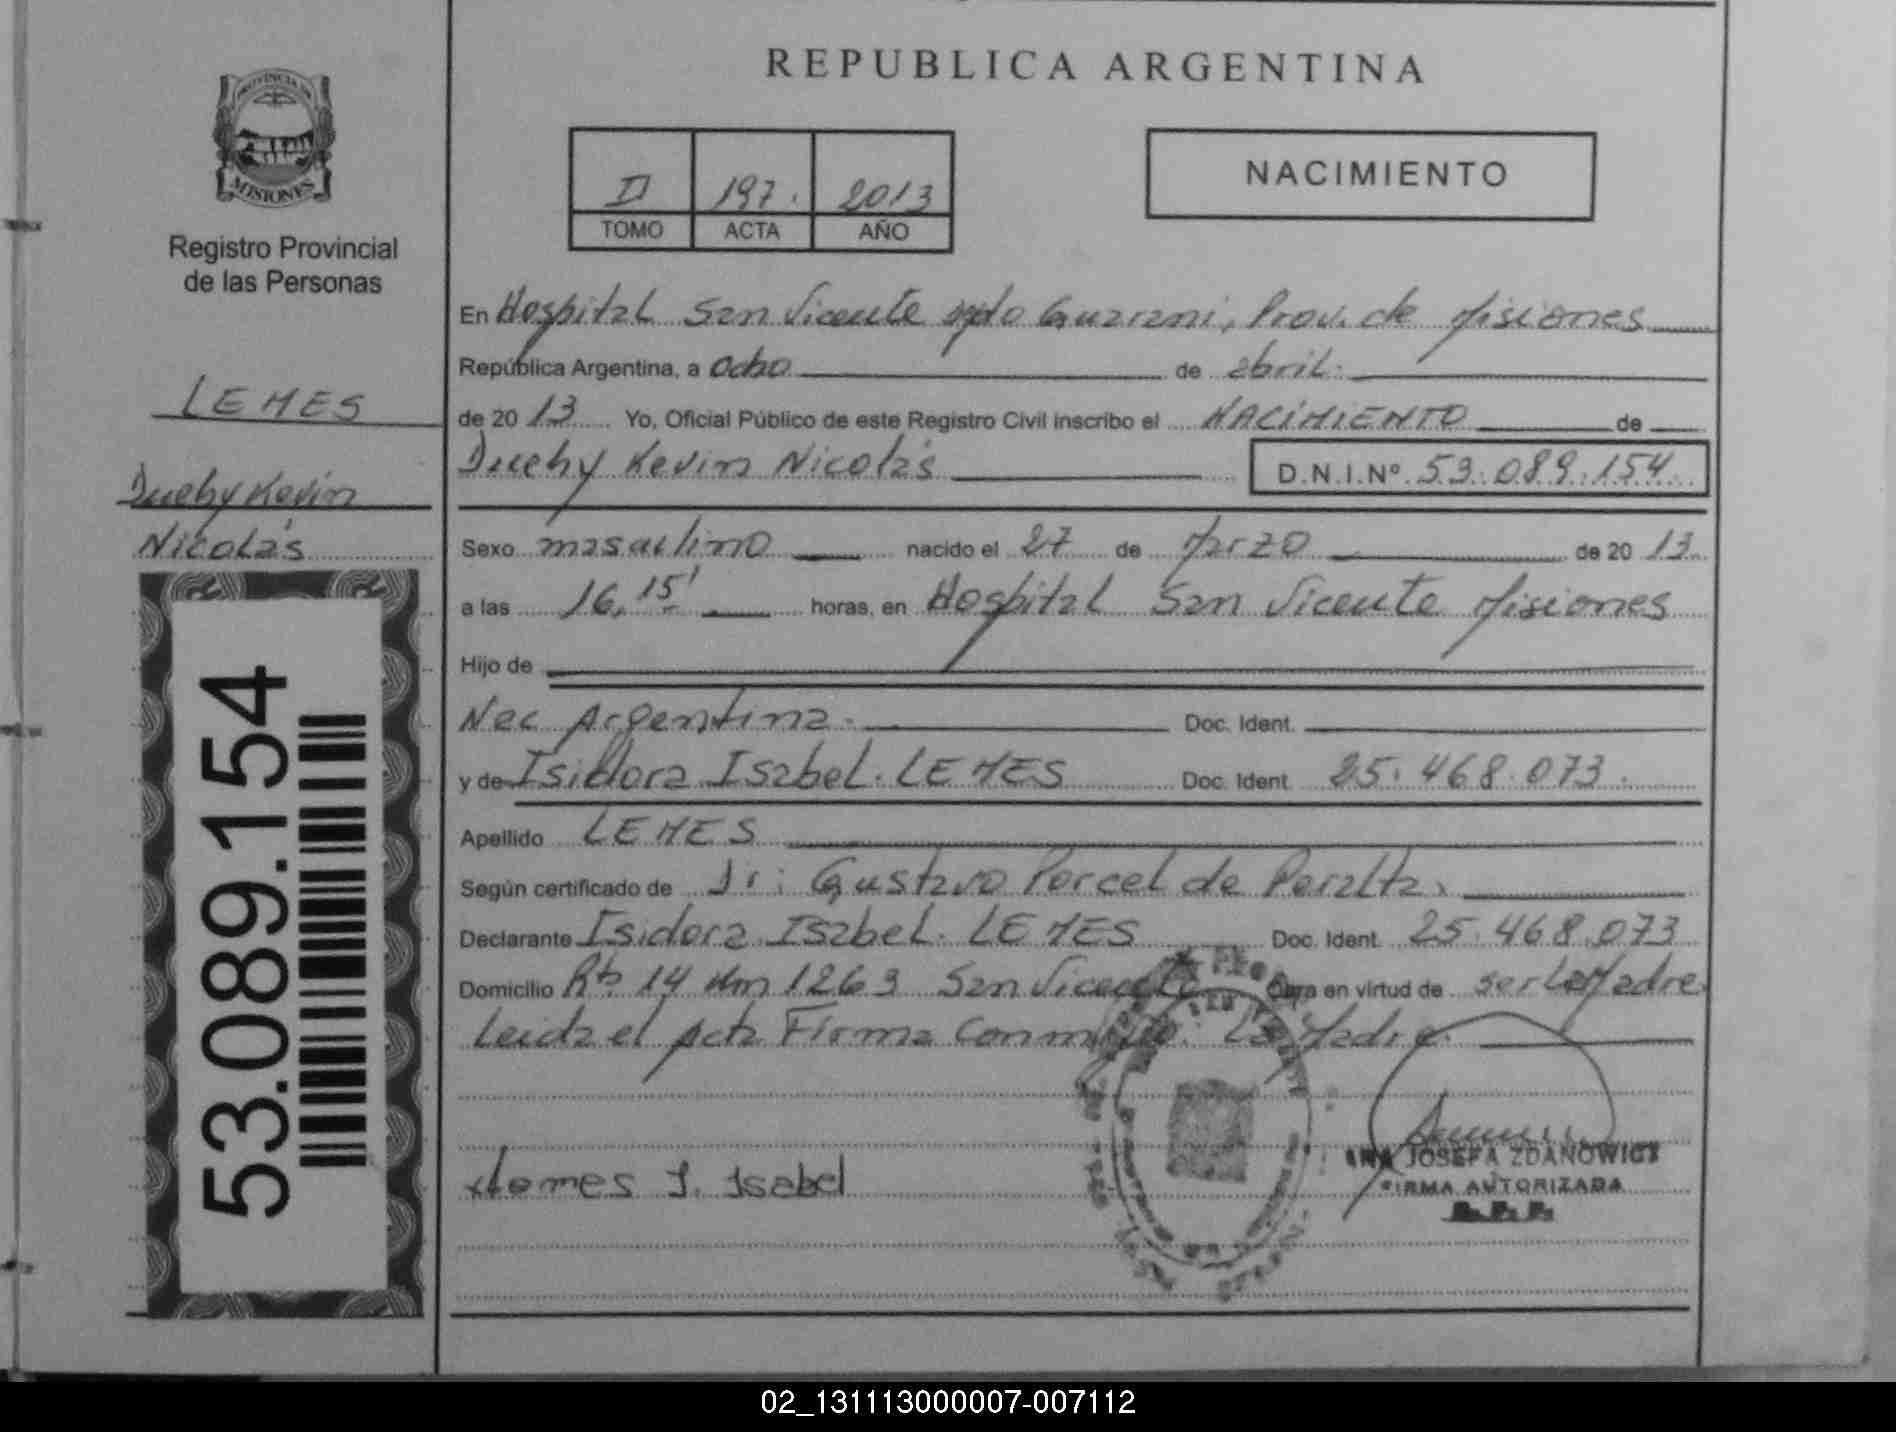 PROVINCIA DE
MISIONES
Registro Provincial
de las Personas
LEMES
Duchy Kevin
Nicolás
53.089.154
REPUBLICA ARGENTINA
II 197. 2013
TOMO ACTA AÑO
NACIMIENTO
En Hospital San Vicente Guarani, Prov. de Misiones
República Argentina, a ocho de abril.
de 20 13 Yo, Oficial Público de este Registro Civil inscribo el NACIMIENTO de
Duchy Kevin Nicolás D.N.I.Nº 53.089.154
Sexo masculino nacido el 27 de Marzo de 20 13
a las 16,15' horas, en Hospital San Vicente Misiones
Hijo de
Nac Argentina. Doc. Ident.
y de Isidora Isabel. LEMES Doc. Ident. 25.468.073.
Apellido LEMES
Según certificado de Dr: Gustavo Porcel de Peralta.
Declarante Isidora Isabel. LEMES Doc. Ident. 25.468.073
Domicilio Rta 14 Km 1263 San Vicente Obra en virtud de ser La Madre.
Leida el Acta Firma Conmigo: La Madre.
Lemes I. Isabel
ANA JOSEFA ZDANOWICZ
FIRMA AUTORIZADA
R.P.P.
02_131113000007-007112